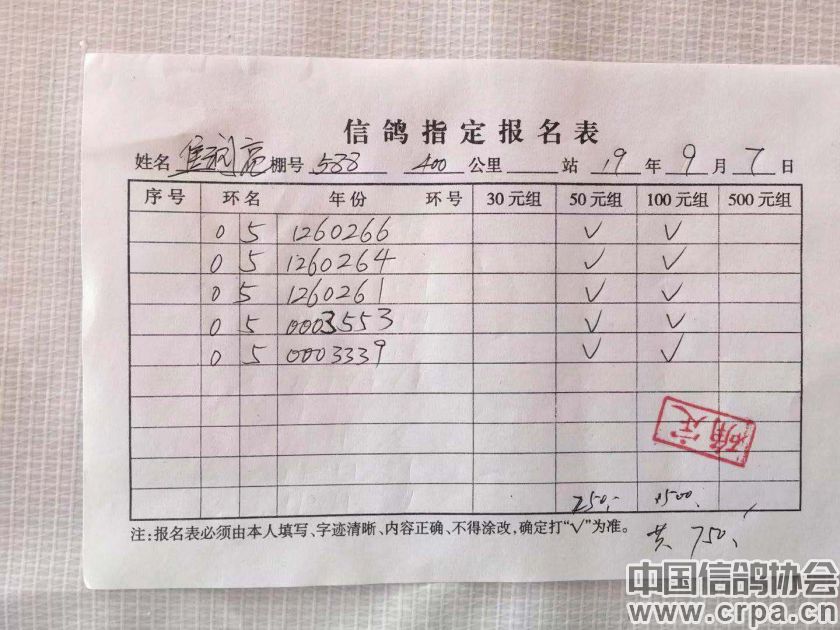 信鸽指定报名表
姓名 焦润亮 棚号 588 400 公里 站 19 年 9 月 7 日
序号 环名 年份 环号 30元组 50元组 100元组 500元组
0 5 1260266 √ √
0 5 1260264 √ √
0 5 1260261 √ √
0 5 0003553 √ √
0 5 0003339 √ √
确定
250. 500.
注:报名表必须由本人填写、字迹清晰、内容正确、不得涂改,确定打“√”为准。
共 750.
中国信鸽协会
www.crpa.cn